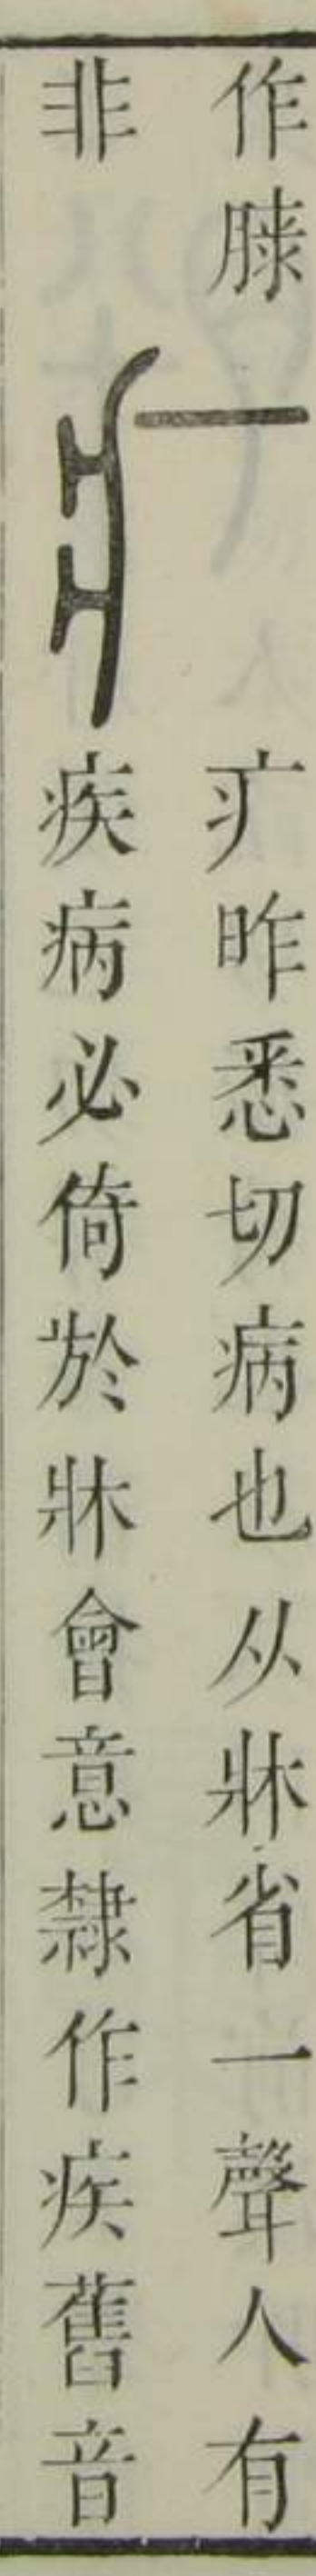 作
非
疒昨悉切病也从牀省一聲人有
疾病必倚於牀會意隸作疾舊音